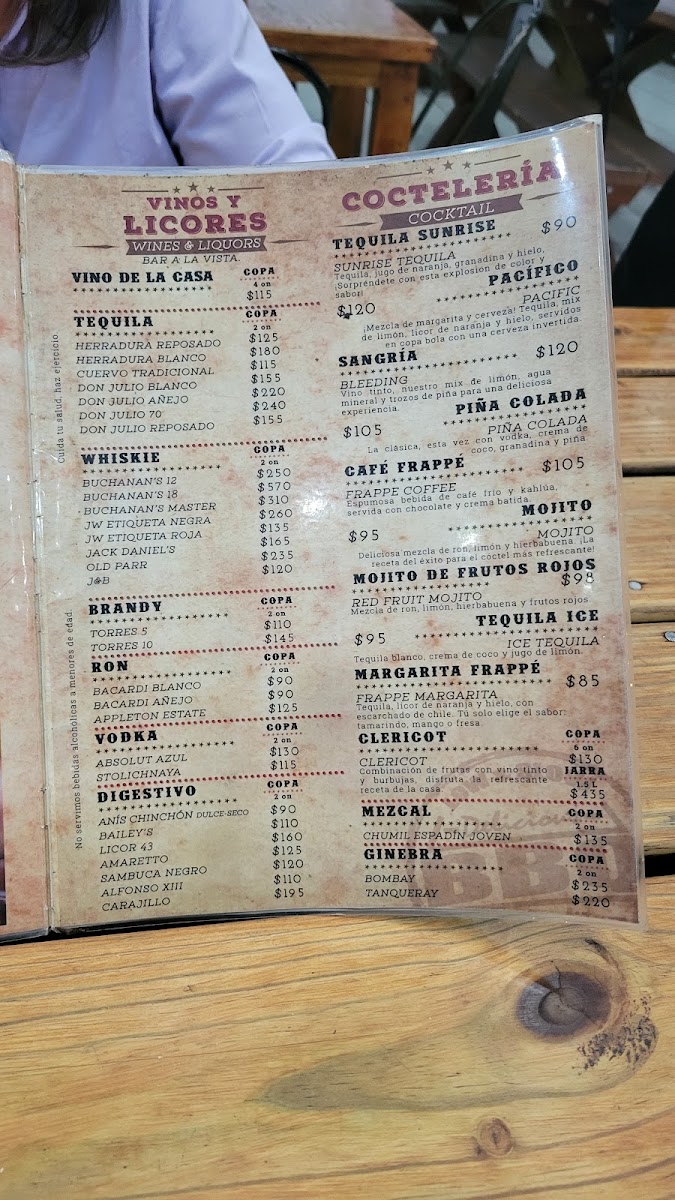 VINOS Y
LICORES
WINES & LIQUORS
BAR A LA VISTA.
VINO DE LA CASA COPA
4 on
$115
TEQUILA COPA
2 on
HERRADURA REPOSADO $125
HERRADURA BLANCO $180
CUERVO TRADICIONAL $115
DON JULIO BLANCO $155
DON JULIO AÑEJO $220
DON JULIO 70 $240
DON JULIO REPOSADO $155
WHISKIE COPA
2 on
BUCHANAN'S 12 $250
BUCHANAN'S 18 $570
BUCHANAN'S MASTER $310
JW ETIQUETA NEGRA $260
JW ETIQUETA ROJA $135
JACK DANIEL'S $165
OLD PARR $235
J&B $120
BRANDY COPA
2 on
TORRES 5 $110
TORRES 10 $145
RON COPA
2 on
BACARDI BLANCO $90
BACARDI AÑEJO $90
APPLETON ESTATE $125
VODKA COPA
2 on
ABSOLUT AZUL $130
STOLICHNAYA $115
DIGESTIVO COPA
2 on
ANÍS CHINCHÓN DULCE-SECO $90
BAILEY'S $110
LICOR 43 $160
AMARETTO $125
SAMBUCA NEGRO $120
ALFONSO XIII $110
CARAJILLO $195
Cuida tu salud, haz ejercicio
No servimos bebidas alcohólicas a menores de edad.
COCTELERÍA
COCKTAIL
TEQUILA SUNRISE $90
SUNRISE TEQUILA
Tequila, jugo de naranja, granadina y hielo,
¡Sorpréndete con esta explosion de color y
sabor!
PACÍFICO
$120 PACIFIC
¡Mezcla de margarita y cerveza! Tequila, mix
de limón, licor de naranja y hielo, servidos
en copa bola con una cerveza invertida.
SANGRÍA $120
BLEEDING
Vino tinto, nuestro mix de limón, agua
mineral y trozos de piña para una deliciosa
experiencia.
PIÑA COLADA
$105 PIÑA COLADA
La clásica, esta vez con vodka, crema de
coco, granadina y piña
CAFÉ FRAPPÉ $105
FRAPPE COFFEE
Espumosa bebida de café frío y kahlúa,
servida con chocolate y crema batida.
MOJITO
$95 MOJITO
Deliciosa mezcla de ron, limón y hierbabuena. ¡La
receta del éxito para el coctel más refrescante!
MOJITO DE FRUTOS ROJOS
$98
RED FRUIT MOJITO
Mezcla de ron, limón, hierbabuena y frutos rojos
TEQUILA ICE
$95 ICE TEQUILA
Tequila blanco, crema de coco y jugo de limón.
MARGARITA FRAPPÉ $85
FRAPPE MARGARITA
Tequila, licor de naranja y hielo, con
escarchado de chile. Tú solo elige el sabor:
tamarindo, mango o fresa.
CLERICOT COPA
6 on
CLERICOT $130
Combinación de frutas con vino tinto JARRA
y burbujas, disfruta la refrescante 1.5 L
receta de la casa $435
MEZCAL COPA
2 on
CHUMIL ESPADÍN JOVEN $135
GINEBRA COPA
2 on
BOMBAY $235
TANQUERAY $220